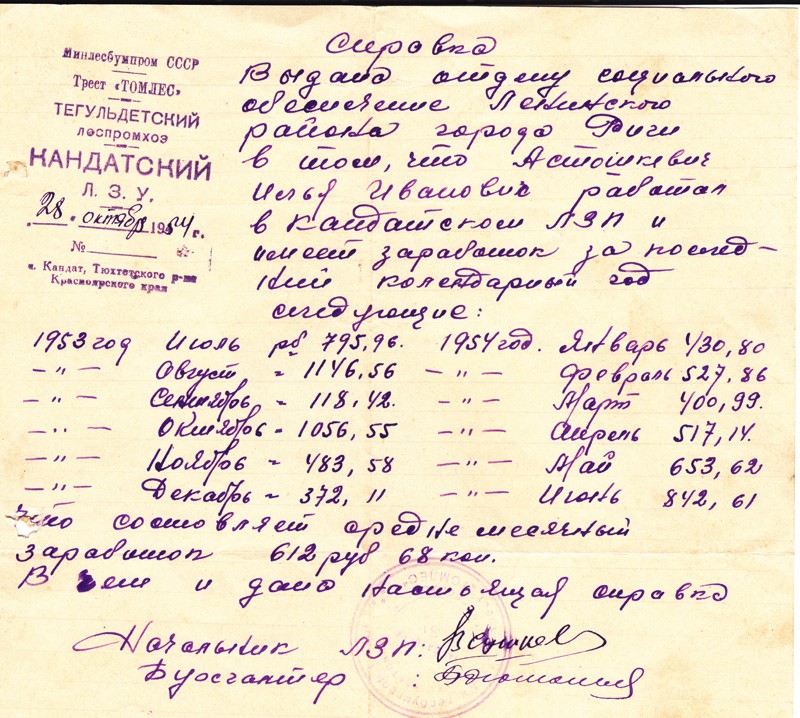 Минлесбумпром СССР
Трест «ТОМЛЕС»
ТЕГУЛЬДЕТСКИЙ
леспромхоз
КАНДАТСКИЙ
Л. З. У.
28. октября 1954 г.
№
п. Кандат, Тюхтетского р-на
Красноярского края
Справка
Выдана отделу социального
обеспечение Ленинского
района города Риги
в том, что Астошкевич
Илья Иванович работал
в Кандатском ЛЗП и
имеет заработок за послед-
ний колендарный год
следующие:
1953 год Июль рб 795,96. 1954 год. Январь 430,80
–"– Август = 1146,56 –"– Февраль 527,86
–"– Сентябрь = 118,42. –"– Март 400,99.
–"– Октябрь = 1056,55 –"– Апрель 517,14.
–"– Ноябрь = 483,58 –"– Май 653,62
–"– Декабрь = 372,11 –"– Июнь 842,61
что состовляет средне месячный
заработок 612 руб 68 коп.
В чем и дана настоящая справка
Начальник ЛЗП:
Бухгалтер :